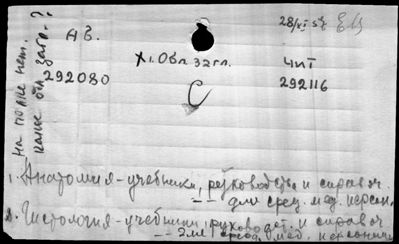 28/XI 5
На полке нет.
какое обл. загл.?
АВ.
XI. Обл. загл.
ЧИТ
292080
292116
С
1. Анатомия - учебники, руководства и справоч.
— " — для сред. мед. персон.
2. Гистология - учебники, руководст. и справоч
— " — для сред. мед. персонала